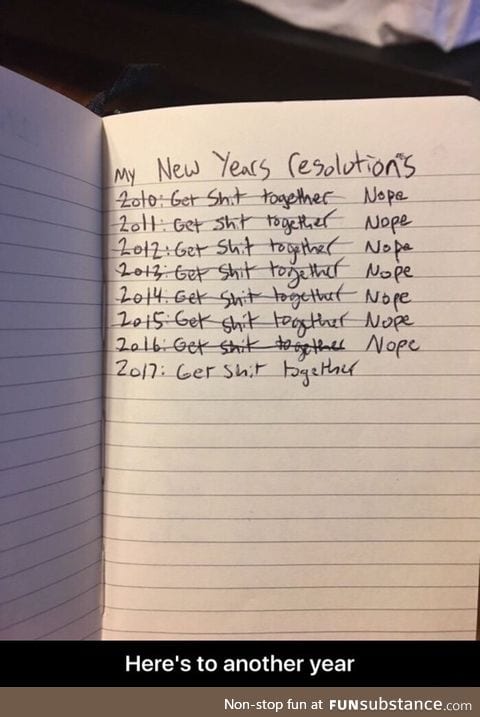 My New Years resolution's
2010: Get Shit together Nope
2011: Get shit together Nope
2012: Get Shit together Nope
2013: Get Shit together Nope
2014: Get Shit together Nope
2015: Get shit together Nope
2016: Get shit together Nope
2017: Get Shit together
Here's to another year
Non-stop fun at FUNsubstance.com